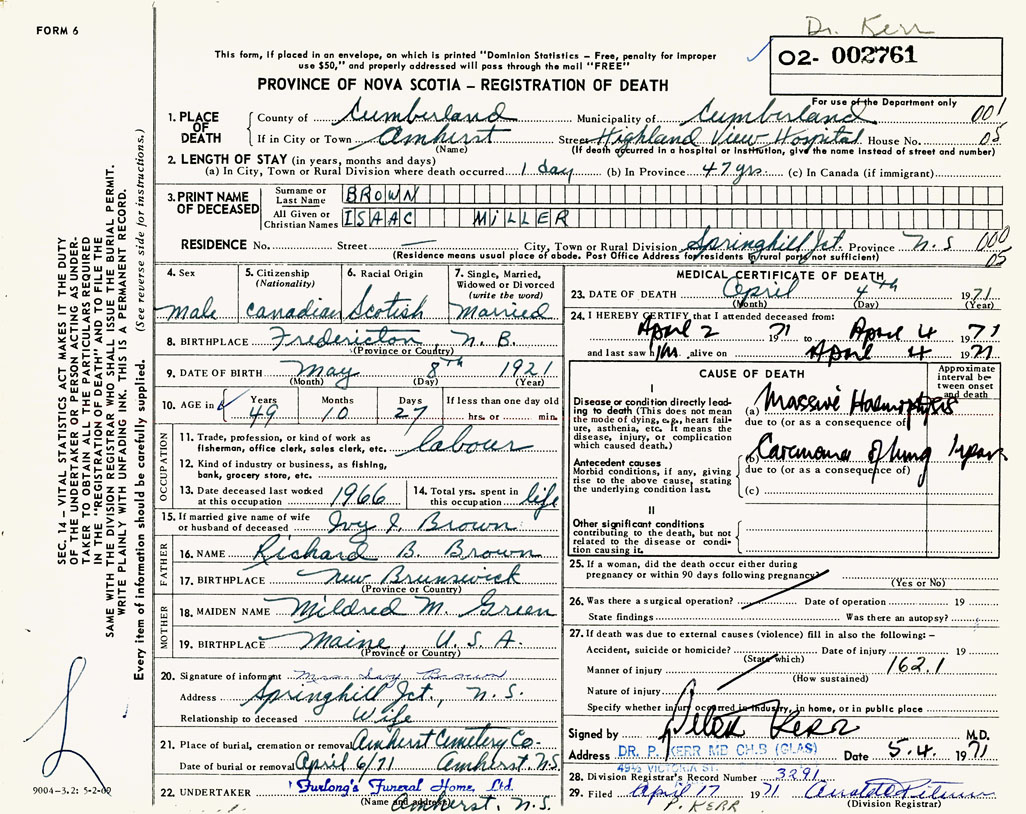 FORM 6
Dr. Kerr
This form, if placed in an envelope, on which is printed "Dominion Statistics - Free, penalty for improper
use $50," and properly addressed will pass through the mail "FREE"
02- 002761
PROVINCE OF NOVA SCOTIA - REGISTRATION OF DEATH
For use of the Department only
1. PLACE OF DEATH County of Cumberland Municipality of Cumberland 001
If in City or Town Amherst Street Highland View Hospital House No. 05
(Name) (If death occurred in a hospital or institution, give the name instead of street and number)
2. LENGTH OF STAY (in years, months and days)
(a) In City, Town or Rural Division where death occurred 1 day (b) In Province 47 yrs. (c) In Canada (if immigrant)
3. PRINT NAME OF DECEASED Surname or Last Name BROWN
All Given or Christian Names ISAAC MiLLER
RESIDENCE No. Street — City, Town or Rural Division Springhill Jct. Province N.S 000
(Residence means usual place of abode. Post Office Address for residents in rural parts not sufficient) 05
4. Sex 5. Citizenship (Nationality) 6. Racial Origin 7. Single, Married, Widowed or Divorced (write the word)
male Canadian Scotish Married
8. BIRTHPLACE Fredericton N. B.
(Province or Country)
9. DATE OF BIRTH May 8th 1921
(Month) (Day) (Year)
10. AGE in Years Months Days If less than one day old
49 10 27 hrs. or min.
OCCUPATION
11. Trade, profession, or kind of work as
fisherman, office clerk, sales clerk, etc. labour
12. Kind of industry or business, as fishing,
bank, grocery store, etc.
13. Date deceased last worked at this occupation 1966 14. Total yrs. spent in this occupation life
15. If married give name of wife
or husband of deceased Ivy I. Brown
FATHER
16. NAME Richard B. Brown
17. BIRTHPLACE New Brunswick
(Province or Country)
MOTHER
18. MAIDEN NAME Mildred M. Green
19. BIRTHPLACE Maine, U.S.A.
(Province or Country)
20. Signature of informant Brown
Address Springhill Jct., N.S.
Relationship to deceased Wife
21. Place of burial, cremation or removal Amherst Cemetery Co.
Date of burial or removal April 6/71 Amherst, N.S.
22. UNDERTAKER Furlong's Funeral Home, Ltd.
(Name and address) Amherst, N.S.
MEDICAL CERTIFICATE OF DEATH
23. DATE OF DEATH April 4th 1971
(Month) (Day) (Year)
24. I HEREBY CERTIFY that I attended deceased from:
April 2 1971 to April 4 1971
and last saw him alive on April 4 1971
CAUSE OF DEATH
Approximate interval between onset and death
I
Disease or condition directly leading to death (This does not
mean the mode of dying, e.g., heart failure, asthenia, etc. It means the
disease, injury, or complication
which caused death.)
(a) Massive Haemoptysis
due to (or as a consequence of)
Antecedent causes
Morbid conditions, if any, giving
rise to the above cause, stating
the underlying condition last.
(b) Carcinoma of lung 1 year
due to (or as a consequence of)
(c)
II
Other significant conditions
contributing to the death, but not
related to the disease or condition causing it.
25. If a woman, did the death occur either during
pregnancy or within 90 days following pregnancy?
(Yes or No)
26. Was there a surgical operation? Date of operation 19
State findings Was there an autopsy?
27. If death was due to external causes (violence) fill in also the following: -
Accident, suicide or homicide? Date of injury 19
(State which)
Manner of injury 162.1
(How sustained)
Nature of injury
Specify whether injury occurred in industry, in home, or in public place
Signed by Peter Kerr M.D.
Address DR. P. KERR MD CH.B (GLAS) Date 5.4. 1971
49½ VICTORIA ST.
28. Division Registrar's Record Number 3291
29. Filed April 17 1971
P. KERR (Division Registrar)
SEC. 14- VITAL STATISTICS ACT MAKES IT THE DUTY
OF THE UNDERTAKER OR PERSON ACTING AS UNDER-
TAKER TO OBTAIN ALL THE PARTICULARS REQUIRED
IN THE "REGISTRATION OF DEATH" AND TO FILE THE
SAME WITH THE DIVISION REGISTRAR WHO SHALL ISSUE THE BURIAL PERMIT.
WRITE PLAINLY WITH UNFADING INK. THIS IS A PERMANENT RECORD.
Every item of information should be carefully supplied. (See reverse side for instructions.)